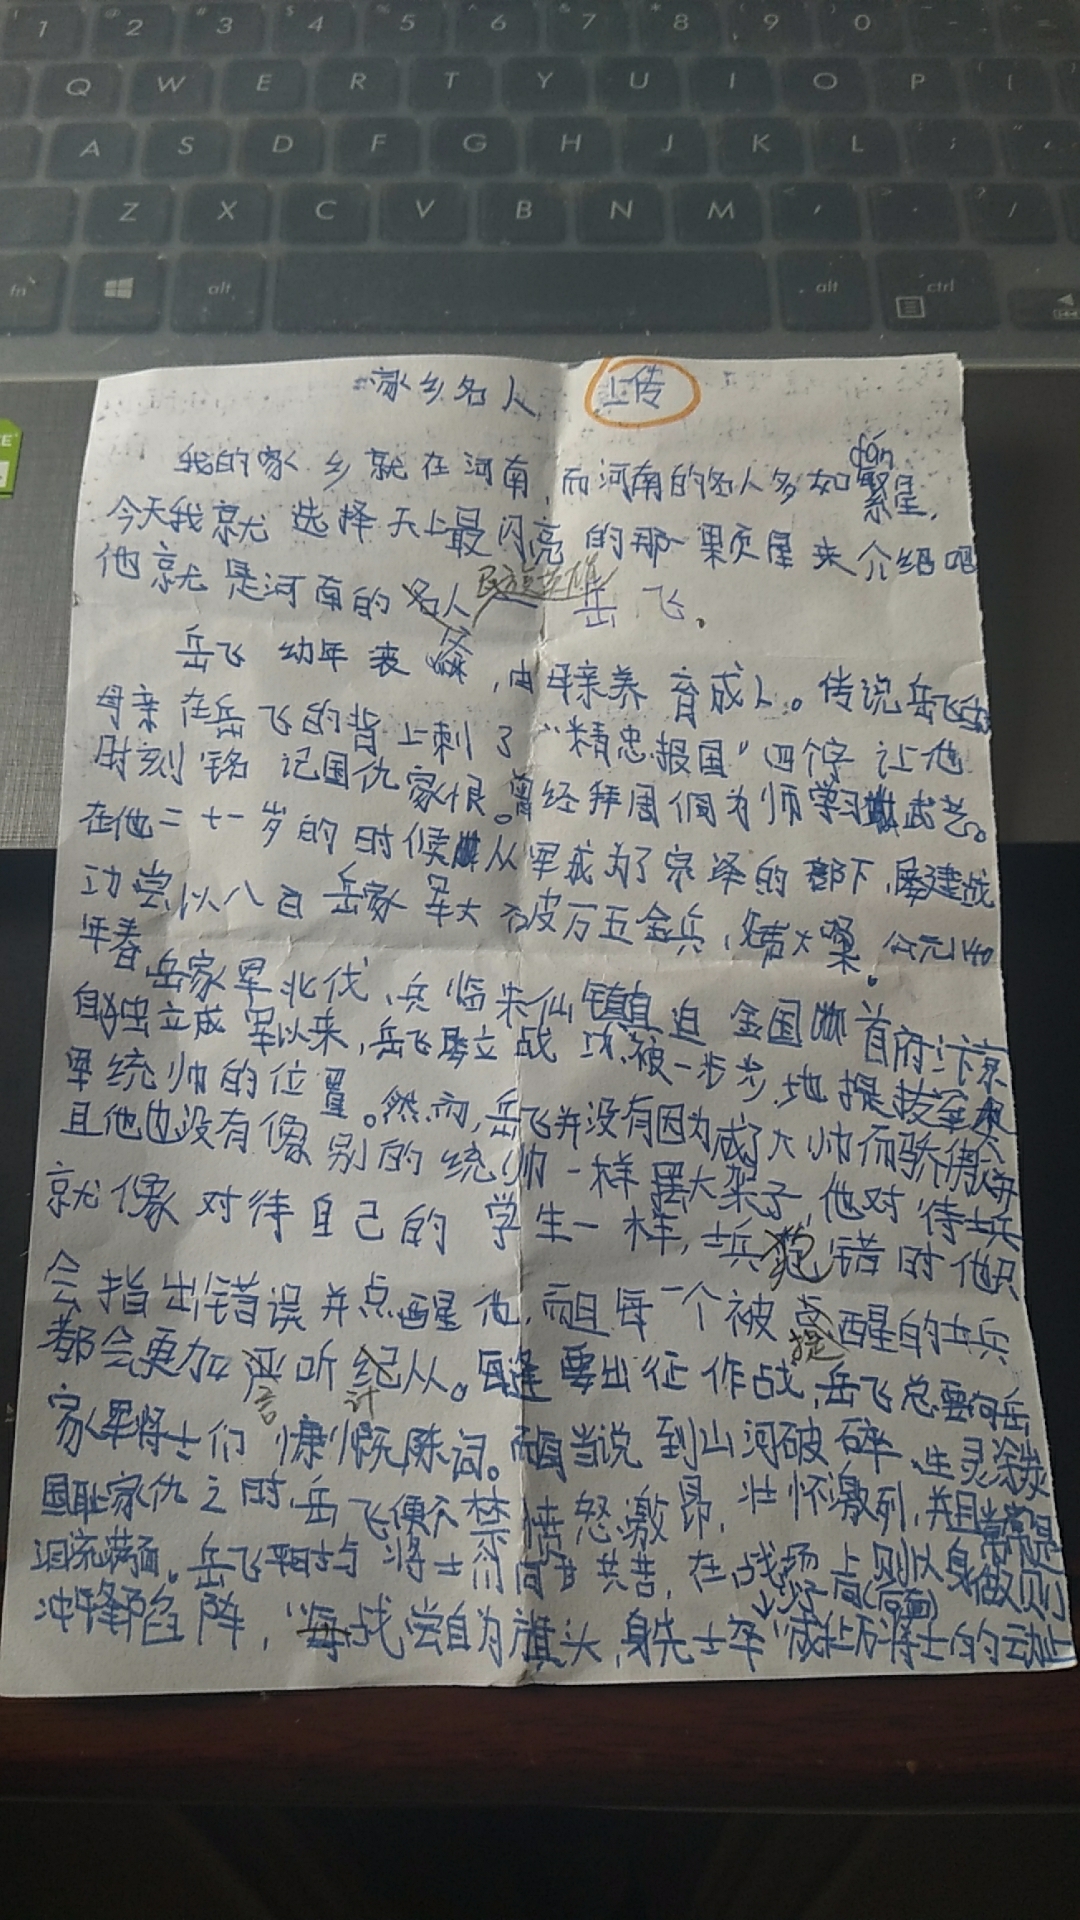 1 2 3 4 5 6 7 8 9 0
Q W E R T Y U I O P
A S D F G H J K L
Z X C V B N M
fn alt alt ctrl
家乡名人 上传
fán
我的家乡就在河南,而河南的名人多如繁星,
今天我就选择天上最闪亮的那一颗星来介绍吧
民族英雄
他就是河南的名人——岳飞。
岳飞幼年丧父,由母亲养育成人。传说岳飞的
母亲在岳飞的背上刺了“精忠报国”四个字让他
时刻铭记国仇家恨。曾经拜周侗为师学习武艺。
在他二十一岁的时候从军成为了宗泽的部下,屡建战
功尝以八百岳家军大破万五金兵,大。公元1140
年春岳家军北伐,兵临朱仙镇直迫金国首府汴京
自独立成军以来,岳飞屡立战功,被一步步地提拔至
军统帅的位置。然而,岳飞并没有因为成了大帅而骄傲
且他也没有像别的统帅一样摆大架子,他对待士兵
就像对待自己的学生一样,士兵犯错时他只
会指出错误并点醒他,而且每一个被点醒的士兵
提
都会更加严听纪从。每逢要出征作战,岳飞总要向岳
言 计
家军将士们慷慨陈词。而且当说到山河破碎、生灵涂炭
国耻家仇之时,岳飞便不禁愤怒激昂,壮怀激列,并且常常是
泪流满面。岳飞平时与将士们同甘共苦,在战场上则以身做则
(后面)
冲锋陷阵,每战尝自为旗头,身先士卒